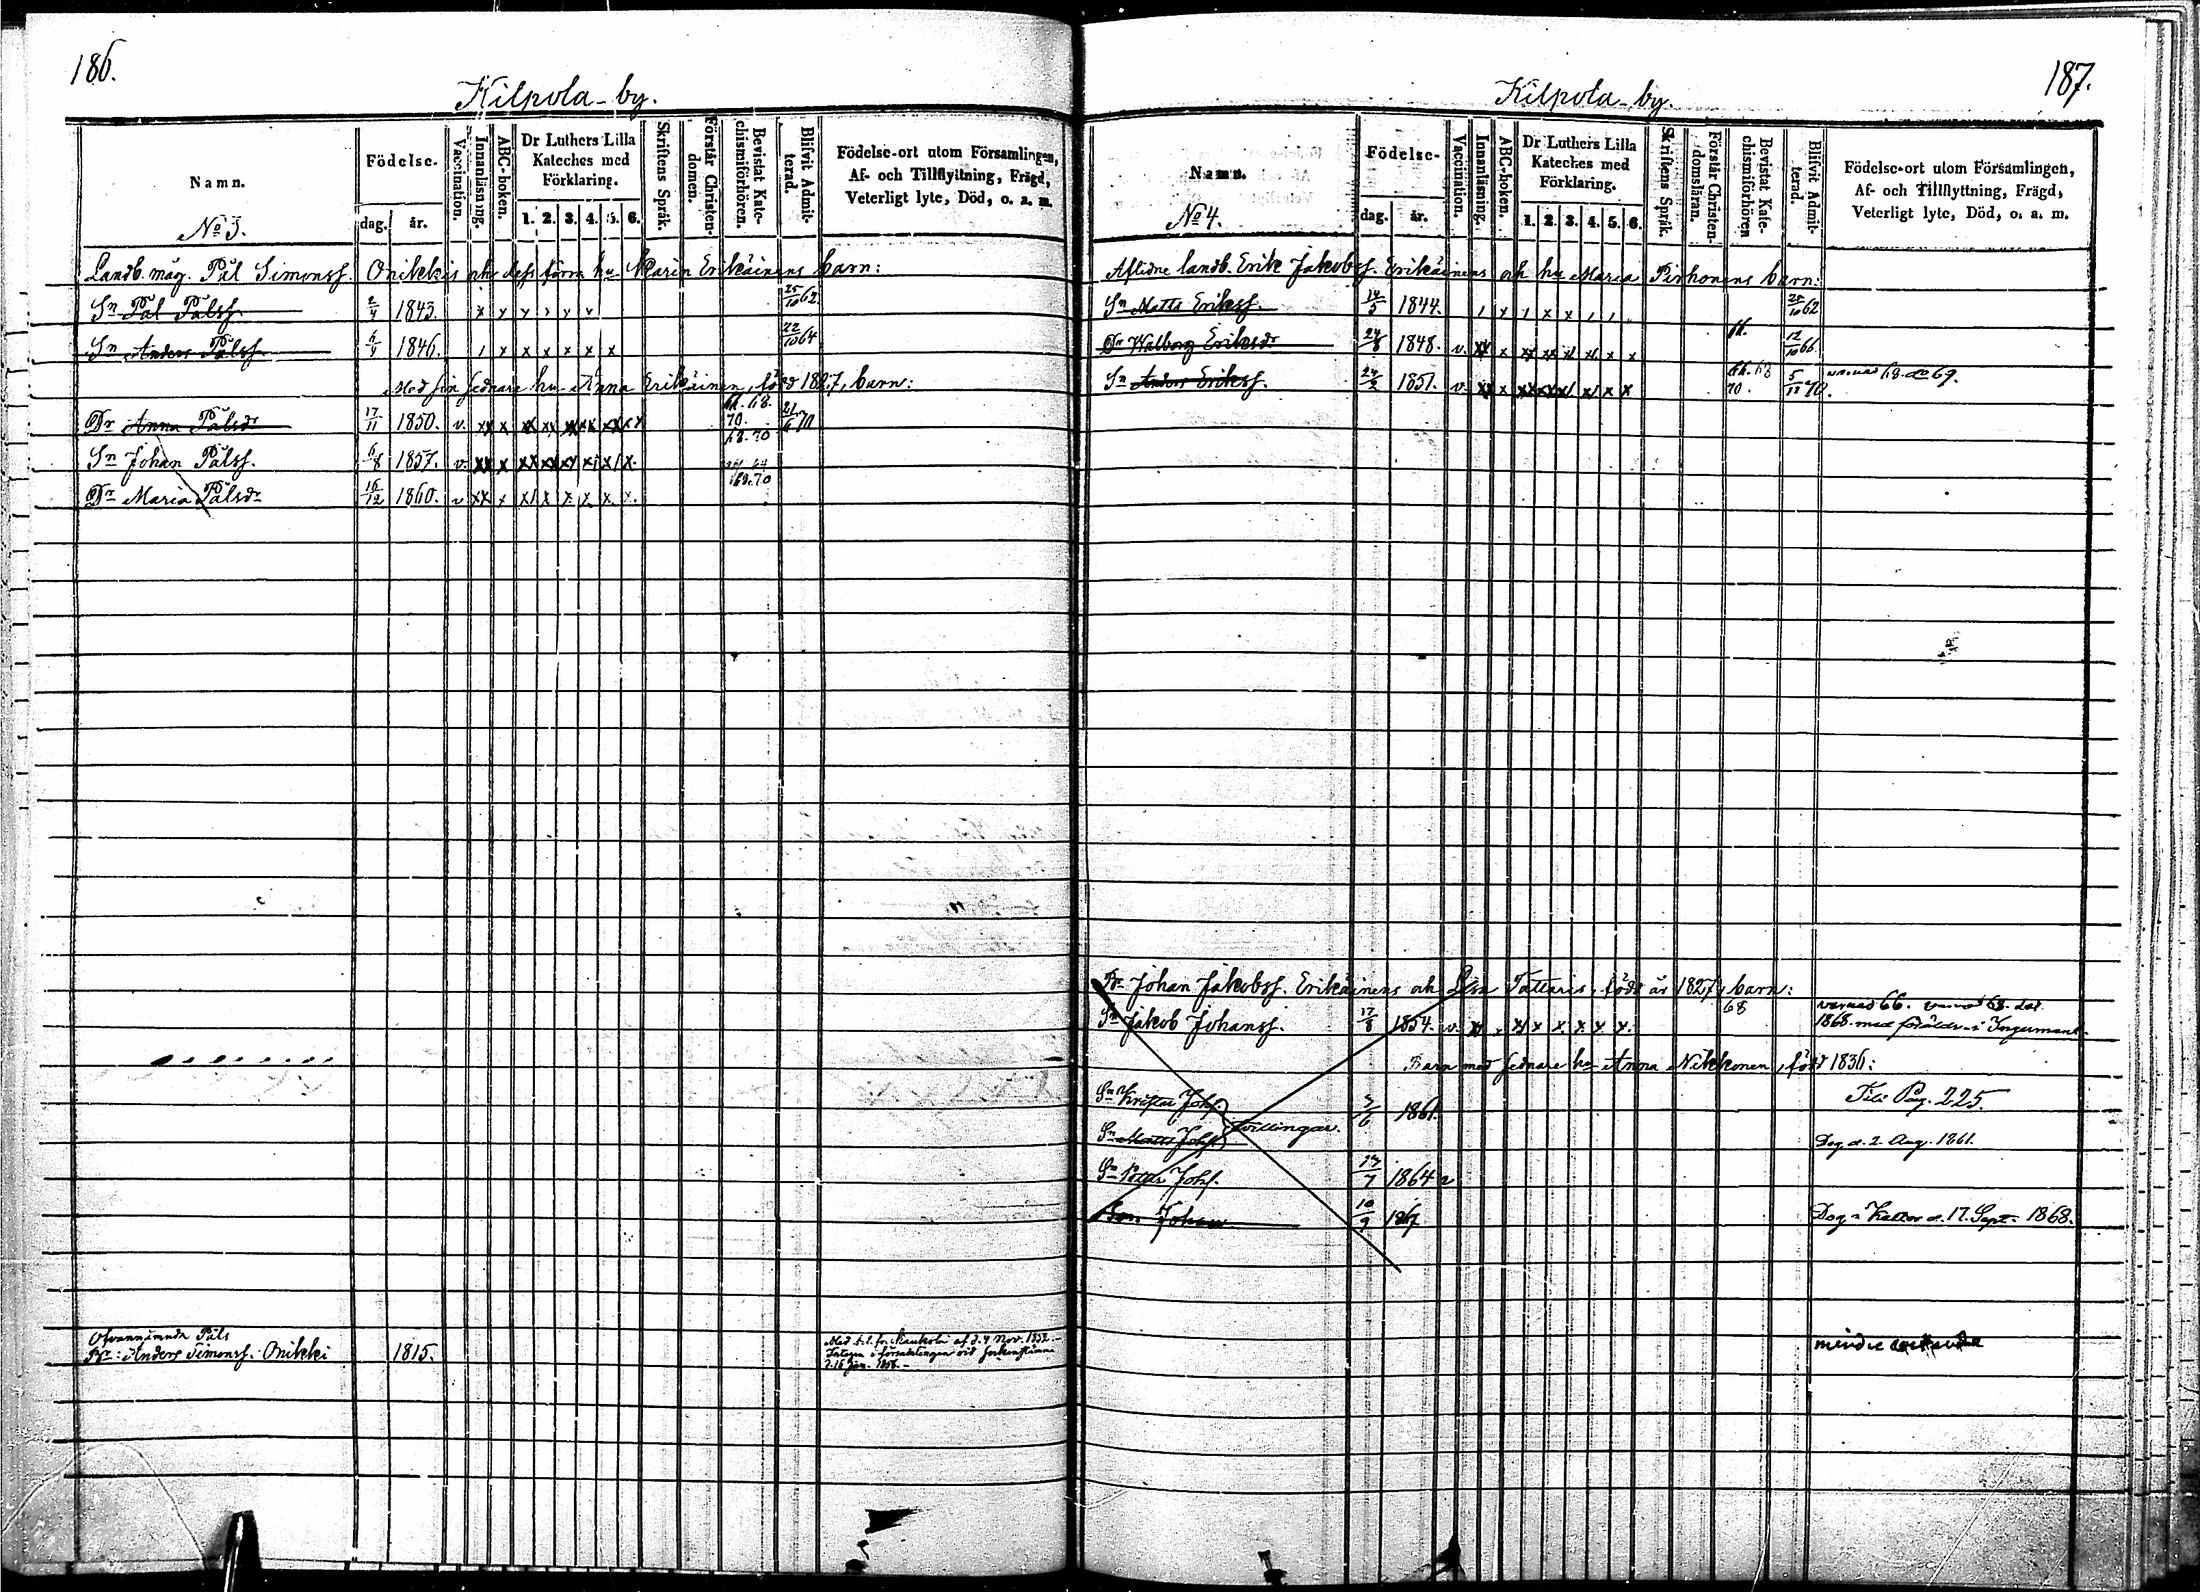 186.
Kilpola by.
Namn.
Födelse-
dag. år.
Vaccination.
Innanläsning.
ABC-boken.
Dr Luthers Lilla Kateches med Förklaring.
1. 2. 3. 4. 5. 6.
Skriftens Språk.
Förstår Christendomen.
Bevistat Katechismiförhören.
Blifvit Admitterad.
Födelse-ort utom Församlingen,
Af- och Tillflyttning, Frägd,
Veterligt lyte, Död, o. a. m.
No 3.
Landb. måg. Pål Simonss. Onikkis och dess förra hu Karin Erikäinens barn:
Sn Pål Pålss. 2/4 1843. x x x x x x 25/10 62
Sn Anders Pålss. 6/4 1846. x x x x x x 22/10 64
Med sin sednare hu Anna Erikäinen, född 1827, barn:
Dr Anna Pålsdr 17/11 1850. v. 66. 68. 70. 21/6 70
Sn Johan Pålss. 6/8 1857. v. 68. 70
Dr Maria Pålsdr 16/12 1860. v 68. 70
Ofvannämnde Påls
Br: Anders Simonss. Onikki 1815.
187.
Kilpola by.
Namn.
Födelse-
dag. år.
Vaccination.
Innanläsning.
ABC-boken.
Dr Luthers Lilla Kateches med Förklaring.
1. 2. 3. 4. 5. 6.
Skriftens Språk.
Förstår Christendomsläran.
Bevistat Katechismiförhören
Blifvit Admitterad.
Födelse-ort utom Församlingen,
Af- och Tillflyttning, Frägd,
Veterligt lyte, Död, o. a. m.
No 4.
Aflidne landb. Erik Jakobss. Erikäinens och hu Maria Pirhonens barn:
Sn Matts Erikss. 14/5 1844. 62
Dr Walborg Eriksdr 24/8 1848. v. 66. 12/10 66
Sn Anders Erikss. 24/2 1851. v. 66. 68 70. 5/10 70. 68 69.
Br Johan Jakobss. Erikäinens och Lisa Tattaris, född år 1827, barn:
Sn Jakob Johanss. 17/8 1854. v. 68 varnad 66. 68.
1868. med föräldr. i Ingermanl.
Barn med sednare hu Anna Nikkonen, född 1836:
Sn Krister Johs. tvillingar. 5/6 1861. Till Pag. 225.
Sn Matts Johs. Dog d. 2. Aug. 1861.
Sn Petter Johs. 17/7 1864 v
Son Johan 10/9 1867 Dog d. 17. Sept. 1868.
mindre